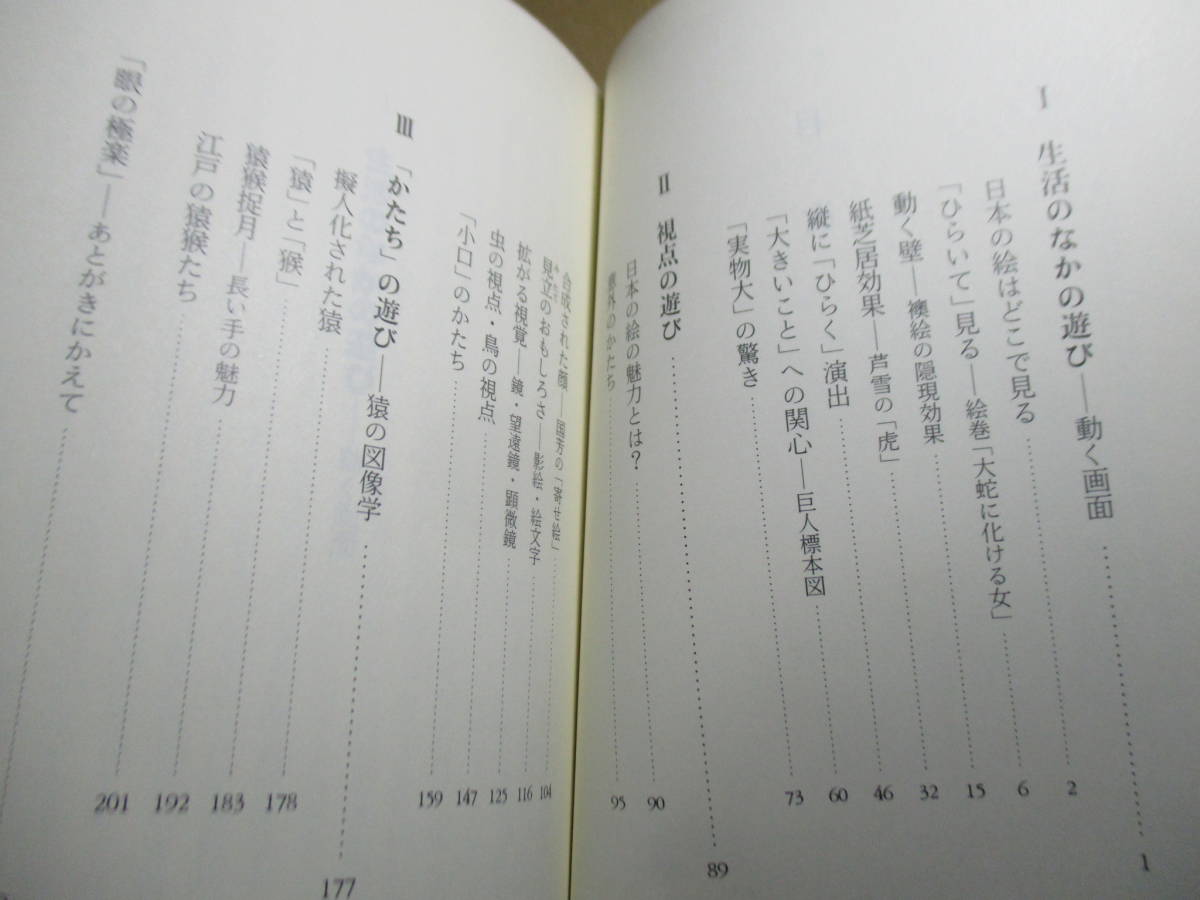 I 生活のなかの遊び——動く画面 1
日本の絵はどこで見る 2
「ひらいて」見る——絵巻「大蛇に化ける女」 6
動く壁——襖絵の隠現効果 15
紙芝居効果——芦雪の「虎」 32
縦に「ひらく」演出 46
「大きいこと」への関心——巨人標本図 60
「実物大」の驚き 73
II 視点の遊び 89
日本の絵の魅力とは? 90
意外のかたち 95
合成された顔——国芳の「寄せ絵」 104
見立のおもしろさ——影絵・絵文字 116
拡がる視覚——鏡・望遠鏡・顕微鏡 125
虫の視点・鳥の視点 147
「小口」のかたち 159
III 「かたち」の遊び——猿の図像学 177
擬人化された猿 178
「猿」と「猴」 183
猿猴捉月——長い手の魅力 192
江戸の猿猴たち 201
「眼の極楽」——あとがきにかえて